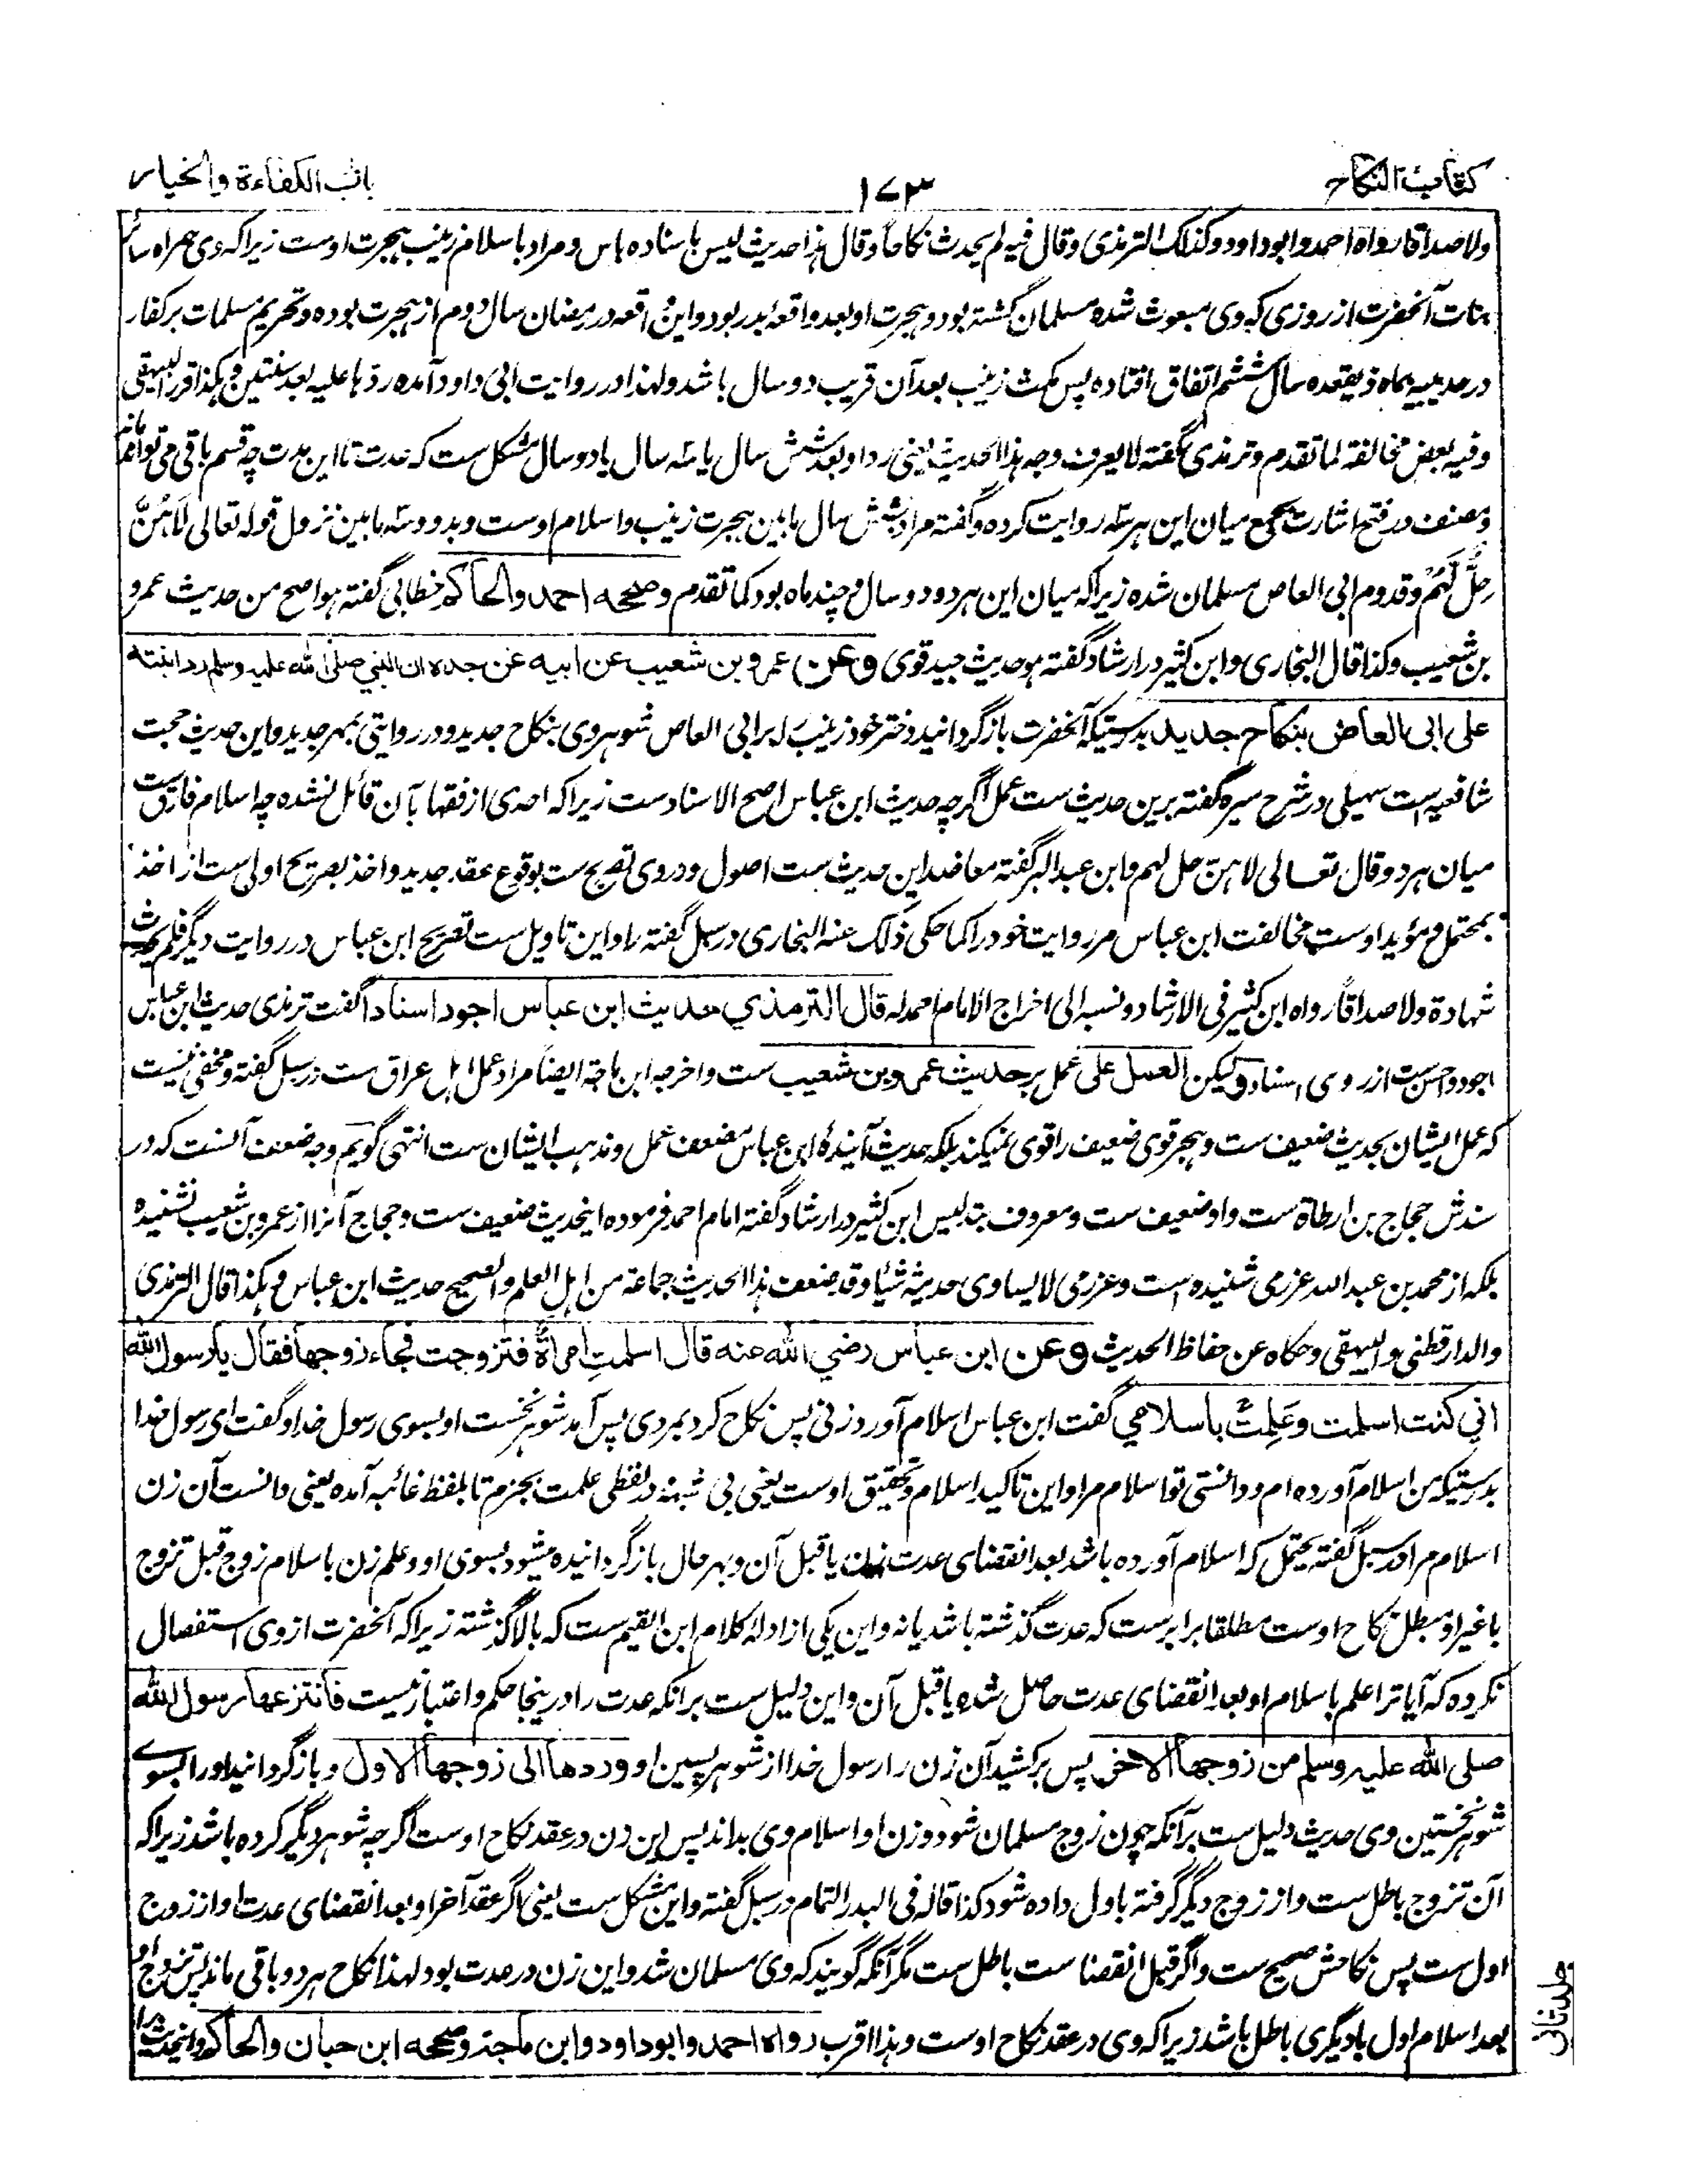 كتاب النكاح
١٧٣
باب الكفاءة والخيار
ولا صداقا رواه احمد وابوداود وكذلك الترمذى وقال فيه لم يحدث نكاحا وقال هذا حديث ليس باسناده باس ومراد باسلام زينب ہجرت اوست زيرا كہ وى ہمراه سائر
بنات آنحضرت از روزى كہ وى مبعوث شده مسلمان گشتہ بود وہجرت او بعد واقعۂ بدر بود واين واقعہ در رمضان سال دوم از ہجرت بوده وتحريم مسلمات بر كفار
در حديبيہ بماه ذيقعده سال ششم اتفاق افتاده پس مكث زينب بعد آن قريب دو سال باشد ولہذا در روايت ابى داود آمده ردہا عليہ بعد سنتين وہكذا قرر البيہقى
وفيہ بعض مخالفۃ لما تقدم وترمذى گفتہ لا يعرف وجہ ہذا الحديث يعنى رد او بعد شش سال يا سہ سال يا دو سال مشكل ست كہ عدت تا اين مدت چہ قسم باقى مى تواند ماند
ومصنف در فتح اشارت بجمع ميان اين ہر سہ روايت كرده وگفتہ مراد بشش سال ما بين ہجرت زينب واسلام اوست وبدو وسہ ما بين نزول قولہ تعالى لَا ہُنَّ
حِلٌّ لَہُمْ وقدوم ابى العاص مسلمان شده زيرا كہ ميان اين ہر دو دو سال وچند ماه بود كما تقدم وصححه احمد والحاكم خطابى گفتہ ہو اصح من حديث عمرو
بن شعيب وكذا قال البخارى وابن كثير در ارشاد گفتہ ہو حديث جيد قوى وعن عمرو بن شعيب عن ابيه عن جده ان النبي صلى الله عليه وسلم رد ابنته
على ابى العاص بنكاح جديد بدرستيكہ آنحضرت بازگردانيد دختر خود زينب را بر ابى العاص شوہر وى بنكاح جديد ودر روايتى بمہر جديد واين حديث حجت
شافعيہ است سہيلى در شرح سيره گفتہ برين حديث ست عمل اگرچہ حديث ابن عباس اصح الاسنادست زيرا كہ احدى از فقہا بآن قائل نشده چہ اسلام فارق ست
ميان ہر دو وقال تعالى لا ہن حل لہم وابن عبد البر گفتہ معاضد اين حديث ست اصول ودر وى تصريح ست بوقوع عقد جديد واخذ بصريح اولى ست از اخذ
بمحتمل ومؤيد اوست مخالفت ابن عباس مر روايت خود را كما حكى ذلك عنہ البخارى در سبل گفتہ را واين تاويل ست تصريح ابن عباس در روايت ديگر فلم يحدث
شہادة ولا صداقاً رواه ابن كثير فى الارشاد ونسبہ الى اخراج الامام احمد لہ قال الترمذي حديث ابن عباس اجود اسنادا گفت ترمذى حديث ابن عباس
اجود واحسن ست از روى اسناد وليكن العمل على عمل بر حديث عمرو بن شعيب ست واخرجہ ابن ماجۃ ايضاً مراد عمل اہل عراق ست در سبل گفتہ ومخفى نيست
كہ عمل ايشان بحديث ضعيف ست وہجر قوى ضعيف را قوى نميكند بلكہ حديث آينده ابن عباس مضعف عمل ومذہب ايشان ست انتہى گويم وجہ ضعف آنست كہ در
سندش حجاج بن ارطاة ست واو ضعيف ست ومعروف بتدليس ابن كثير در ارشاد گفتہ امام احمد فرموده اينحديث ضعيف ست وحجاج آنرا از عمرو بن شعيب نشنيده
بلكہ از محمد بن عبد الله عزرمى شنيده است وعزرمى لا يساوى حديثہ شيئا وقد ضعف ہذا الحديث جماعۃ من اہل العلم والصحيح حديث ابن عباس وہكذا قال الترمذى
والدارقطنى والبيہقى وحكاه عن حفاظ الحديث وعن ابن عباس رضي الله عنه قال اسلمت امرأة فتزوجت فجاء زوجها فقال يا رسول الله
اني كنت اسلمت وعَلِمَتْ باسلامي گفت ابن عباس اسلام آورد زنى پس نكاح كرد بمردى پس آمد شوہر نخست او بسوى رسول خدا وگفت اى رسول خدا
بدرستيكہ من اسلام آورده ام ودانستى تو اسلام مرا واين تاكيد اسلام وتحقيق اوست يعنى بى شبہہ در لفظى علمت بجزم تا بلفظ غائبہ آمده يعنى دانست آن زن
اسلام مرا در سبل گفتہ يحتمل كہ اسلام آورده باشد بعد انقضاى عدت زن يا قبل آن وبہر حال بازگردانيده ميشود بسوى او وعلم زن باسلام زوج قبل تزوج
با غير او مبطل نكاح اوست مطلقا برابرست كہ عدت گذشتہ باشد يا نہ واين يكى از ادلہ كلام ابن القيم ست كہ بالا گذشتہ زيرا كہ آنحضرت از وى استفصال
نكرده كہ آيا ترا علم باسلام او بعد انقضاى عدت حاصل شده يا قبل آن واين دليل ست بر آنكہ عدت را در ينجا حكم واعتبار نيست فانتزعها رسول الله
صلى الله عليه وسلم من زوجها الاخر پس بركشيد آن زن را رسول خدا از شوہر پسين او وردها الى زوجها الاول وبازگردانيد او را بسوے
شوہر نخستين وى حديث دليل ست بر آنكہ چون زوج مسلمان شود وزن او اسلام وى بداند پس اين زن در عقد نكاح اوست اگرچہ شوہر ديگر كرده باشد زيرا كہ
آن تزوج باطل ست واز زوج ديگر گرفتہ باول داده شود كذا قالہ فى البدر التمام در سبل گفتہ واين مشكل ست يعنى اگر عقد آخر او بعد انقضاى عدت او از زوج
اول ست پس نكاحش صحيح ست واگر قبل انقضا ست باطل ست مگر آنكہ گويند كہ وى مسلمان شد واين زن در عدت بود لہذا نكاح ہر دو باقى ماند پس تزوج او
بعد اسلام اول با ديگرى باطل باشد زيرا كہ وى در عقد نكاح اوست وہذا اقرب رواه احمد وابوداود وابن ماجة وصححه ابن حبان والحاكم واينحديث را
جلد ثانى